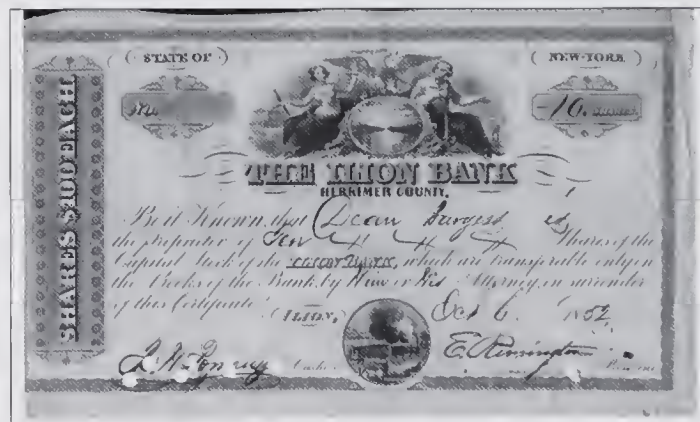 STATE OF
NEW-YORK
No.
10. SHARES
SHARES $100 EACH
THE ILION BANK
HERKIMER COUNTY.
Be it Known, that Dean Burgess is
the proprietor of Ten Shares of the
Capital Stock of the ILION BANK, which are transferable only on
the Books of the Bank by Him or His Attorney, on surrender
of this Certificate.
ILION, Oct 6 1852
Cashier E. Remington